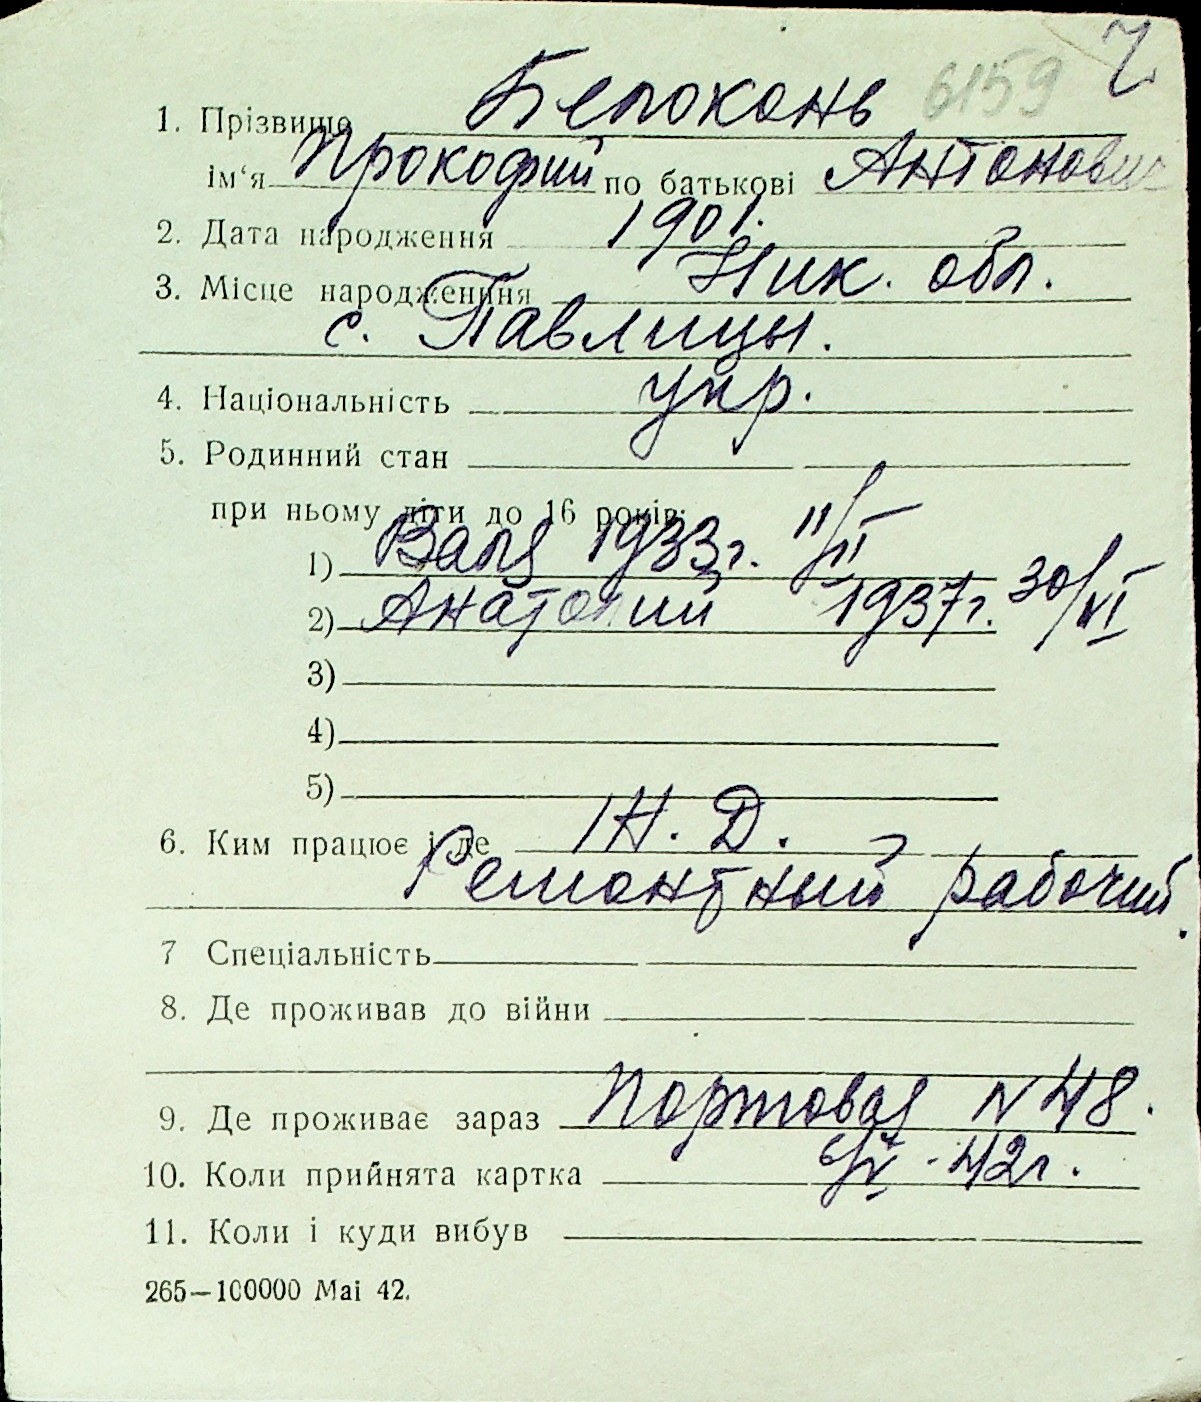 6159
1. Прізвище Белоконь
ім'я Прокофий по батькові Антонович
2. Дата народження 1901.
3. Місце народженння Ник. обл.
с. Павлицы.
4. Національність укр.
5. Родинний стан
при ньому діти до 16 років:
1) Валя 1933г. 11/II
2) Анатолий 1937г. 30/VI
3)
4)
5)
6. Ким працює і де Н. Д.
Ремонтный рабочий.
7 Спеціальність
8. Де проживав до війни
9. Де проживає зараз Портовая N 48.
10. Коли прийнята картка 42г.
11. Коли і куди вибув
265—100000 Mai 42.